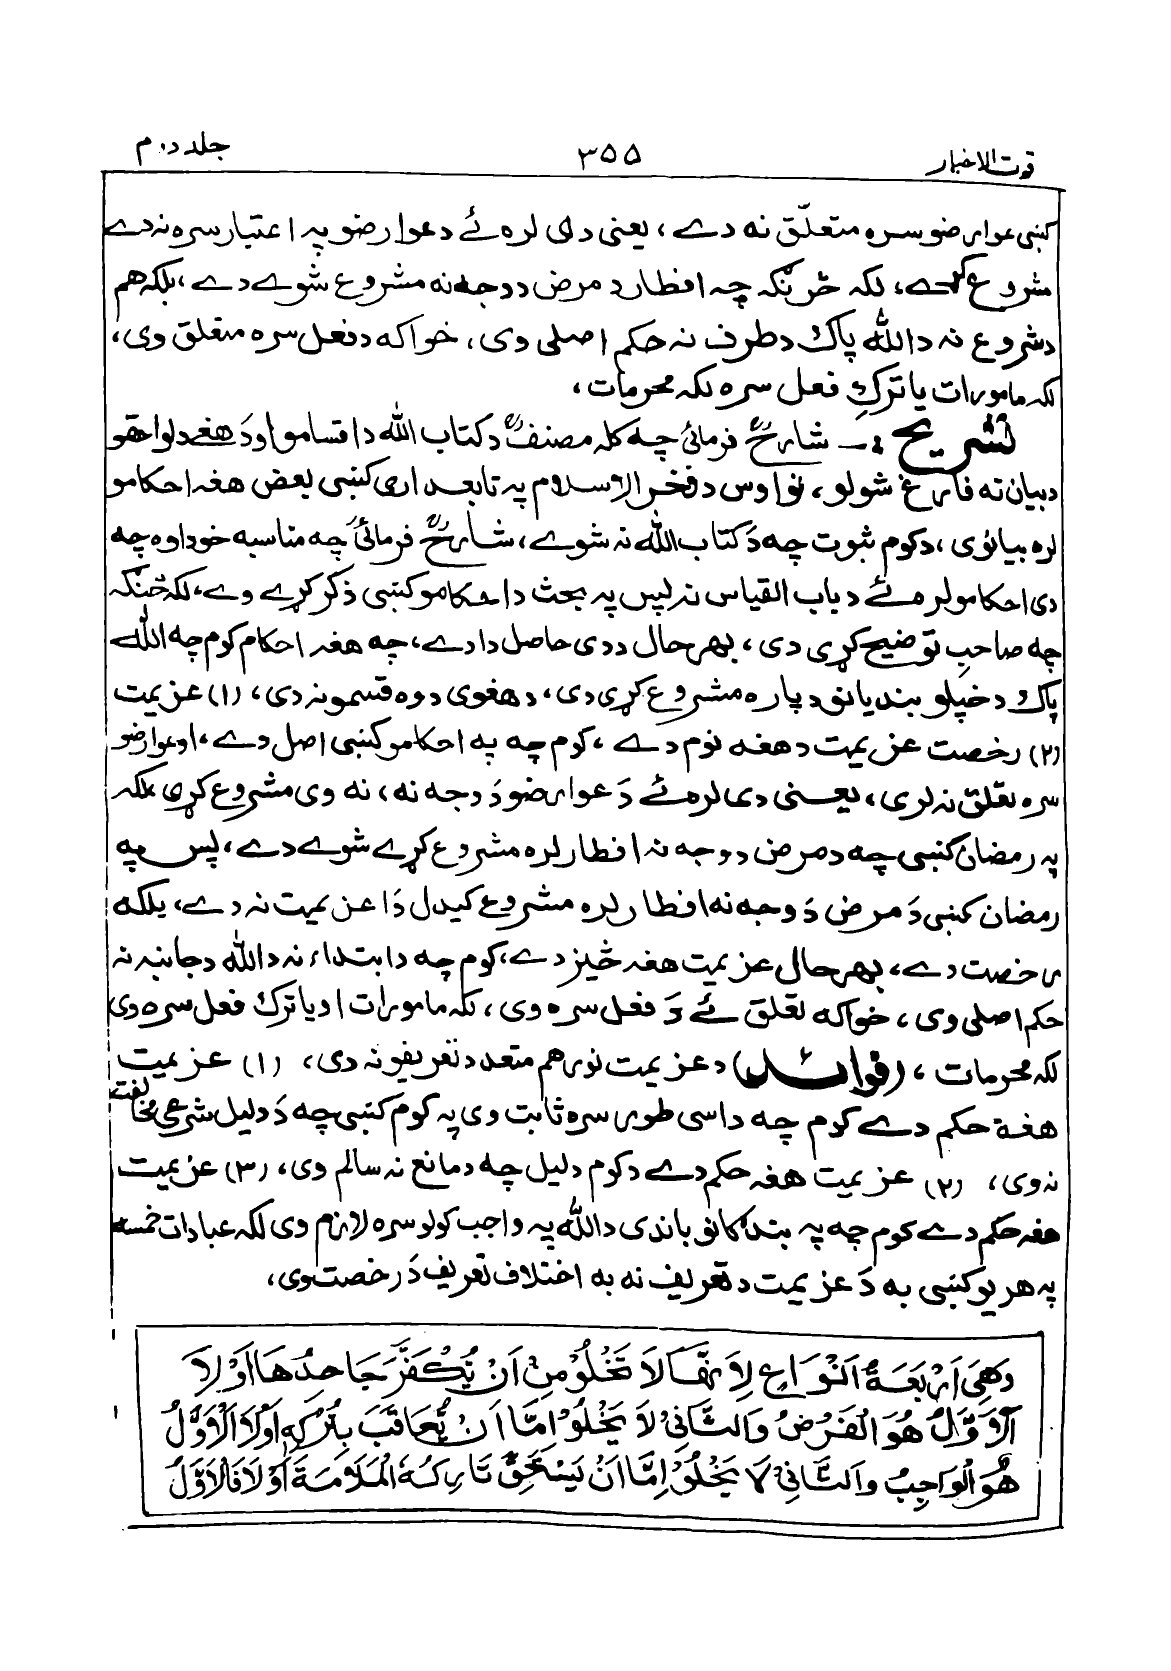 قوت الاخبار ۳۵۵ جلد دوم
کښې عوارضو سره متعلق نه دے ، یعنی دی لره ئے د عوارضو په اعتبار سره نه دے
مشروع کړے، لکه څرنګه چه افطار د مرض د وجه نه مشروع شوے دے ، بلکه هم
د شروع نه د الله پاک د طرف نه حکم اصلی وی ، خواکه د فعل سره متعلق وی ،
لکه مامورات یا ترکِ فعل سره لکه محرمات ،
تشریح :۔ شارحؒ فرمائی چه کله مصنفؒ د کتاب الله د اقسامو او دَ هغے د لواحقو
د بیان ته فارغ شولو ، نو اوس د فخر الاسلام په تابعداری کښې بعض هغه احکامو
لره بیانوی ، د کوم ثبوت چه دَ کتاب الله نه شوے ، شارحؒ فرمائی چه مناسبه خو دا وه چه
دی احکامو لره ئے د باب القیاس نه پس په بحث د احکامو کښې ذکر کړے وے ، لکه څنګه
چه صاحبِ توضیح کړی دی ، بهر حال د دی حاصل دا دے ، چه هغه احکام کوم چه الله
پاک د خپلو بندیانو د پاره مشروع کړی دی ، د هغوی دوه قسمونه دی ، (۱) عزیمت
(۲) رخصت عزیمت د هغه نوم دے ، کوم چه په احکامو کښې اصل دے ، او عوارضو
سره تعلق نه لری ، یعنی دی لره ئے دَ عوارضو دَ وجه نه ، نه وی مشروع کړی لکه
په رمضان کښې چه د مرض د وجه نه افطار لره مشروع کړے شوے دے ، پس په
رمضان کښې دَ مرض دَ وجه نه افطار لره مشروع کیدل دَا عزیمت نه دے ، بلکه
رخصت دے ، بهر حال عزیمت هغه څیز دے ، کوم چه د ابتداء نه د الله د جانبه نه
حکم اصلی وی ، خواکه تعلق ئے دَ فعل سره وی ، لکه مامورات او یا ترک فعل سره وی
لکه محرمات ، (فوائد) د عزیمت نور هم متعدد تعریفونه دی ، (۱) عزیمت
هغه حکم دے کوم چه داسی طور سره ثابت وی په کوم کښې چه دَ دلیل شرعی مخالفت
نه وی ، (۲) عزیمت هغه حکم دے د کوم دلیل چه د مانع نه سالم وی ، (۳) عزیمت
هغه حکم دے کوم چه په بندګانو باندی د الله په واجب کولو سره لازم وی لکه عبادات خمسه
په هر یو کښې به دَ عزیمت د تعریف نه به اختلاف تعریف دَ رخصت وی ،
وَهِيَ اَرْبَعَةُ اَنْوَاعٍ لِاَنَّهَا لَا تَخْلُوْ مِنْ اَنْ يُّكَفَّرَ جَاحِدُهَا اَوْ لَا
اَلْاَوَّلُ هُوَ الْفَرْضُ وَالثَّانِيْ لَا يَخْلُوْ اِمَّا اَنْ يُّعَاقَبَ بِتَرْكِهٖ اَوْ لَا اَلْاَوَّلُ
هُوَ الْوَاجِبُ وَالثَّانِيْ لَا يَخْلُوْ اِمَّا اَنْ يَّسْتَحِقَّ تَارِكُهُ الْمَلَامَةَ اَوْ لَا فَالْاَوَّلُ